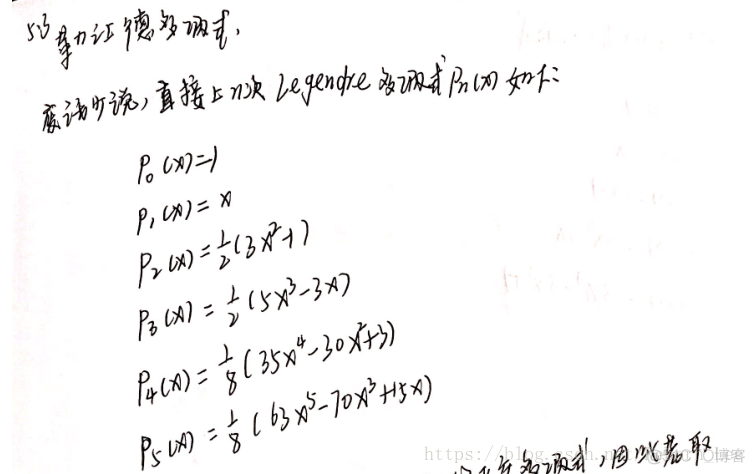 5.3 勒让德多项式.
废话少说,直接上n次Legendre多项式Pn(x)如下:
P₀(x)=1
P₁(x)=x
P₂(x)=½(3x²-1)
P₃(x)=½(5x³-3x)
P₄(x)=⅛(35x⁴-30x²+3)
P₅(x)=⅛(63x⁵-70x³+15x)
多项式,因此若取
https://blog.csdn.n
博客